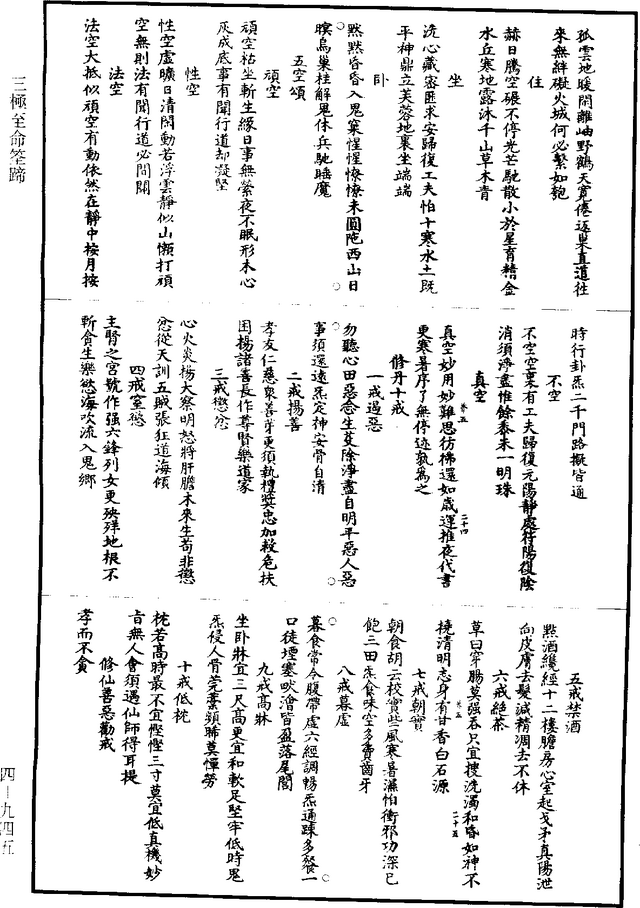 孤雲地暖閑離岫野鶴天寬倦返巢直道往
來無絆礙火城何必繫如匏
住
赫日騰空碾不停光芒馳散小於星育精金
水丘寒地露沐千山草木青
坐
洗心藏密匪求安歸復工夫怕十寒水土既
平神鼎立芙蓉地裏坐端端
卧
黙黙昏昏入鬼窠惺惺憭憭未圓陁西山日
暝烏巢柱解鬼休兵馳睡魔
五空頌
頑空
頑空枯坐斬生緣日事無縈夜不眠形木心
灰成底事有聞行道却凝堅
性空
性空虛曠日清閑動若浮雲靜似山懶打頑
空無則法有聞行道必間關
法空
法空大抵似頑空有動依然在靜中按月按
時行卦炁二千門路擬皆通
不空
不空空裏有工夫歸復元陽靜處符陽復陰
消須淨盡惟餘黍米一明珠
真空
真空妙用妙難思彷彿還如歲運推夜代書
更寒暑序了無停迹孰為之
修丹十戒
一戒過惡
勿聽心田惡念生芟除淨盡自明平惡人惡
事須還遠炁定神安骨自清
二戒揚善
孝友仁慈衆善芽更須執禮奬忠加殺危扶
困揚諸善長作尊賢樂道家
三戒懲忿
心火炎揚大察明怒將肝膽木來生苟非懲
忿從天訓五賊張狂道海傾
四戒窒慾
主腎之宮號作强六鋒列女更殃殍地根不
斬貪生樂慾海吹流入鬼鄉
五戒禁酒
㸃酒纔經十二樓膽房心室起戈矛真陽泄
向皮膚去髮減精凋去不休
六戒絕茶
草曰穿腸莫强吞只宜搜洗濁和昏如神不
撓清明志身有甘香白石源
七戒朝實
朝食胡云校實些風寒暑濕怕衝邪功深已
飽三田炁食味空多費齒牙
八戒暮虛
暮食常令腹帶虛六經調暢炁通踈多餐一
口徒堙塞畎澮皆盈落尾閭
九戒高牀
坐卧牀宜二尺高更宜和軟足堅牢低時鬼
炁侵人骨莞藁頻睎莫憚勞
十戒低枕
枕若高時最不宜慳慳三寸莫宜低真機妙
㫖無人會須遇仙師得耳提
修仙善惡勸戒
孝而不貪
三極至命筌蹄
四－九四五
卷五
二十四
卷五
二十五